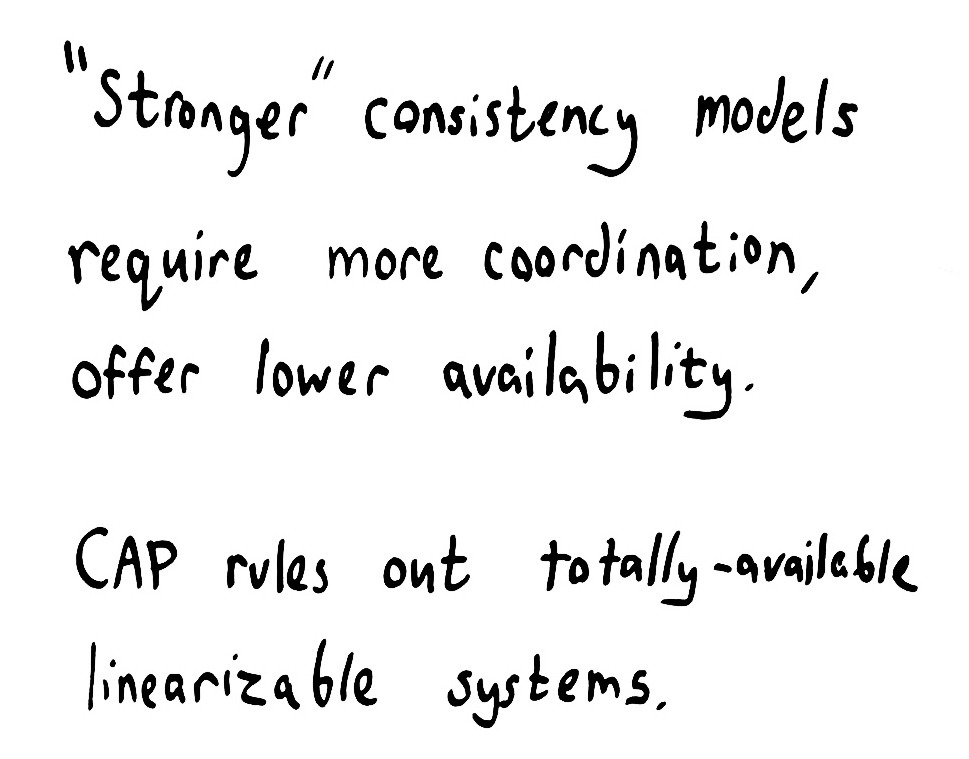 "Stronger" consistency models
require more coordination,
offer lower availability.
CAP rules out totally-available
linearizable systems.